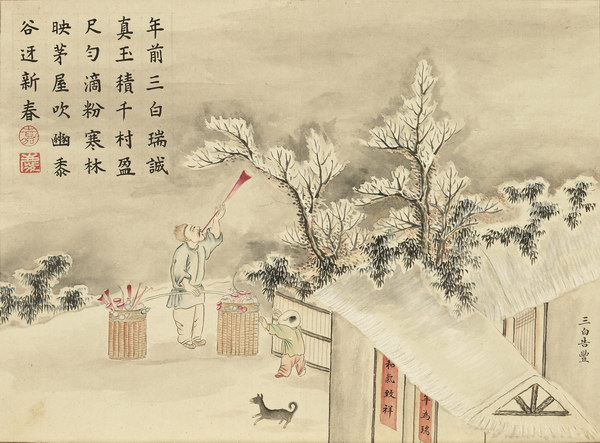 年前三白瑞誠
真玉積千村盈
尺勻滴粉寒林
映茅屋吹豳黍
谷迓新春
三白告豐
年為瑞
和氣致祥